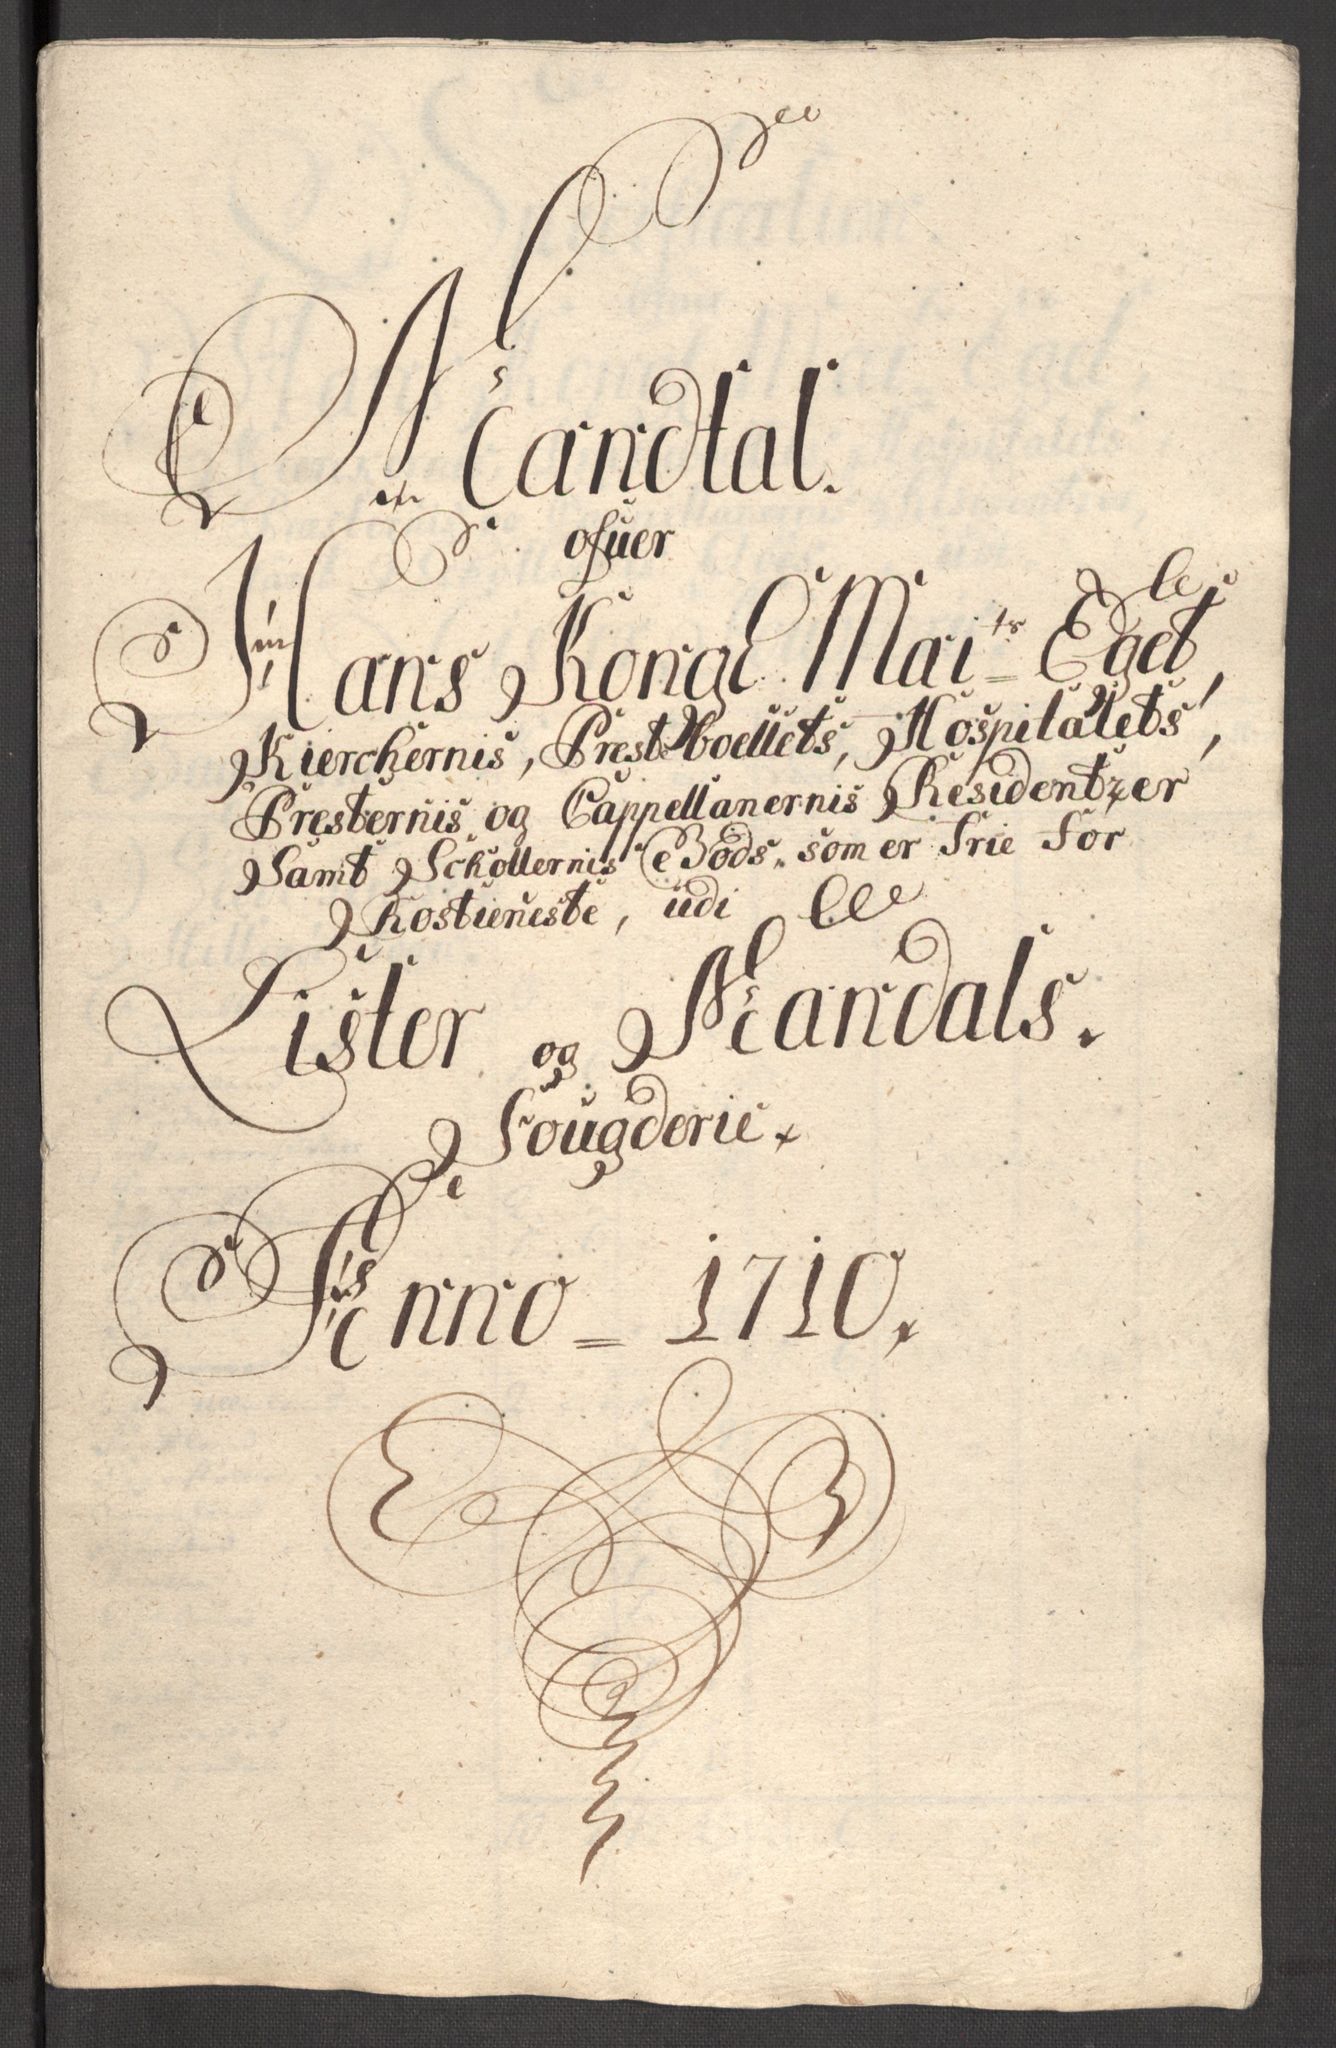 Mandtal.
ofuer
Hans Kongl Mai^ts Eget,
Kierchernis, Prestboellets, Hospitalets,
Presternis og Cappellanernis Residentzer
Samt Schollernis Gods, som er frie for
Rostieneste, udi
Lister og Mandals.
Fougderie.
Anno = 1710.